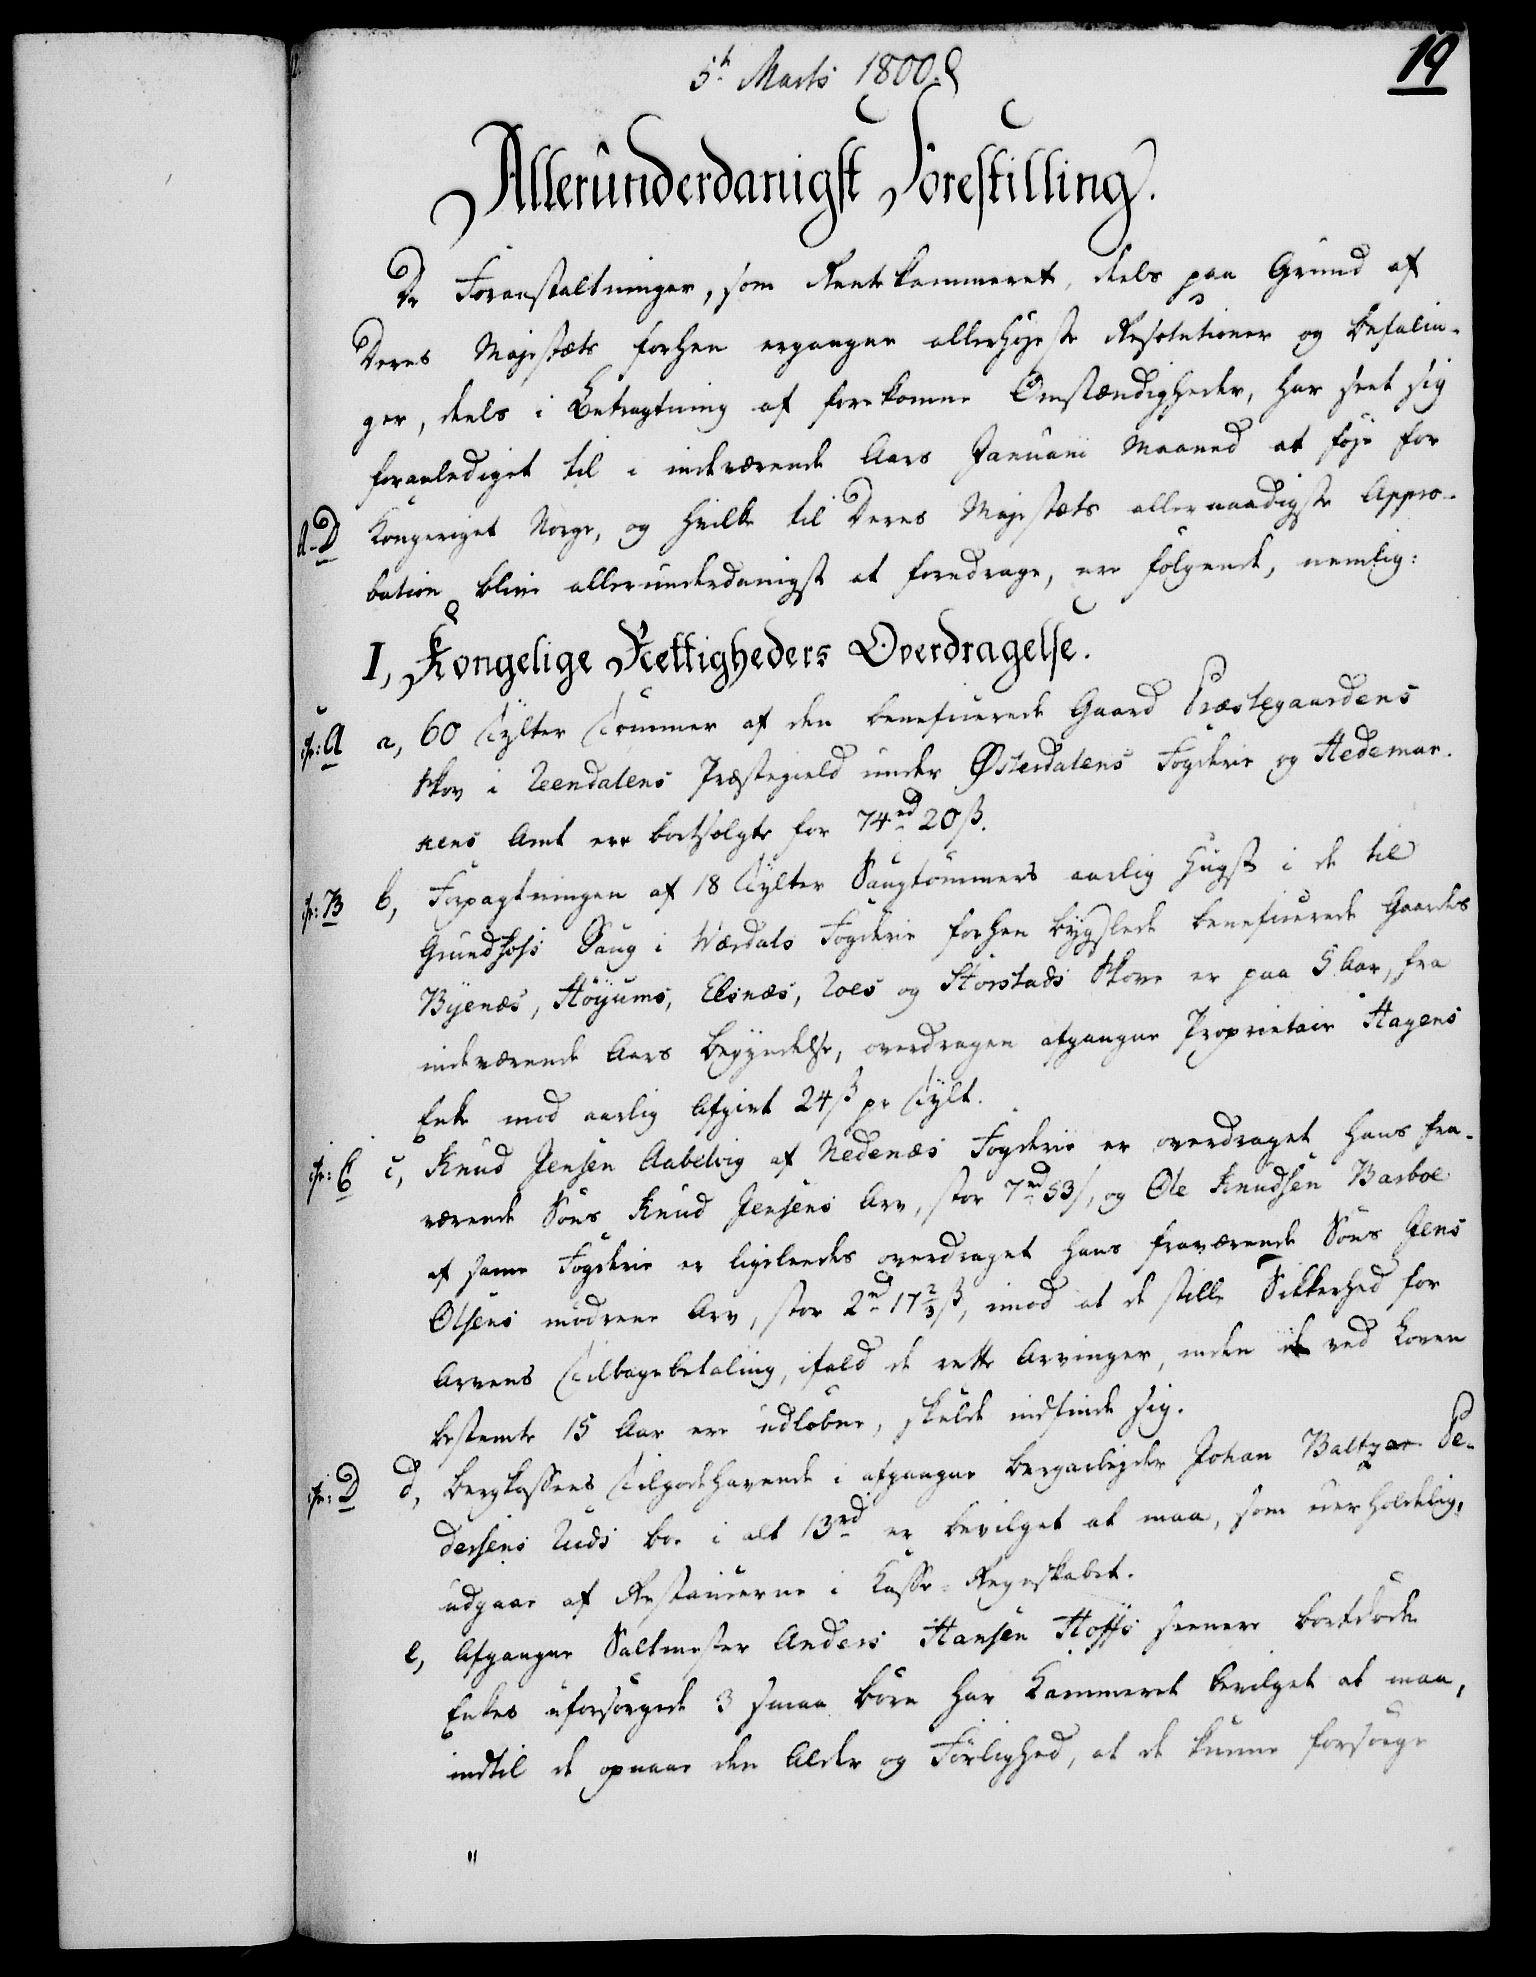 19
5te Marts 1800.
Allerunderdanigst Forestilling.
De Foranstaltninger, som Rentekammeret, deels paa Grund af
Deres Majestæts forhen ergangne allerhøjeste Resolutioner og Befalin-
ger, deels i Betragtning af forekomne Omstændigheder, har seet sig
foranlediget til i indeværende Aars Januarii Maaned at føje for
A-D Kongeriget Norge, og hvilke til Deres Majestæts allernaadigste Appro-
bation blive allerunderdanigst at foredrage, ere følgende, nemlig:
I, Kongelige Rettigheders Overdragelse.
cfr: A a, 60 Tylter Tømmer af den beneficerede Gaard Præstegaardens
Skov i Reendalens Præstegield under Østerdalens Fogderie og Hedemar-
kens Amt ere bortsolgte for 74 rd 20 ß.
cfr: B b, Forpagtningen af 18 Tylter Saugtømmers aarlig Hugst i de til
Grundfoss Saug i Værdals Fogderie forhen bygslede beneficerede Gaardes
Byenæs, Høyums, Elsnæs, Roes og Storstads Skove er paa 5 Aar, fra
indeværende Aars Begyndelse, overdragen afgangne Proprietair Hagens
Enke mod aarlig Afgivt 24 ß pr Tylt.
cfr: C c, Knud Jensen Aabelvig af Nedenæs Fogderie er overdraget hans fra-
værende Søns Knud Jensens Arv, stor 7 rd 53 ß, og Ole Knudsen Barboe
af samme Fogderie er ligeledes overdraget hans fraværende Søns Jens
Olsens mødrene Arv, stor 2 rd 17 2/3 ß, imod at de stille Sikkerhed for
Arvens Tilbagebetaling, ifald de rette Arvinger, inden de ved Loven
bestemte 15 Aar ere udløbne, skulde indfinde sig.
cfr: D d, Bergkassens Tilgodehavende i afgangne Bergarbejder Johan Baltzar Pe-
dersens Ruds Boe i alt 13 rd er bevilget at maa, som uerholdelig,
udgaae af Restancerne i Kasse-Regnskabet.
e, Afgangne Saltmester Anders Hansen Hoffs seenere bortdøde
Enkes uforsørgede 3 smaa Børn har Kammeret bevilget at maa,
indtil de opnaae den Alder og Førlighed, at de kunne forsørge
"